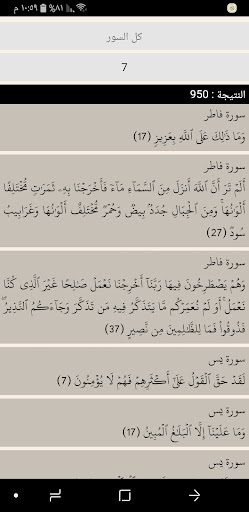 ١٠:٥٩ م
٨١%
كل السور
7
النتيجة : 950
سورة فاطر
وَمَا ذَٰلِكَ عَلَى ٱللَّهِ بِعَزِيزٍ (17)
سورة فاطر
أَلَمْ تَرَ أَنَّ ٱللَّهَ أَنزَلَ مِنَ ٱلسَّمَآءِ مَآءً فَأَخْرَجْنَا بِهِۦ ثَمَرَٰتٍ مُّخْتَلِفًا
أَلْوَٰنُهَا ۚ وَمِنَ ٱلْجِبَالِ جُدَدٌۢ بِيضٌ وَحُمْرٌ مُّخْتَلِفٌ أَلْوَٰنُهَا وَغَرَابِيبُ
سُودٌ (27)
سورة فاطر
وَهُمْ يَصْطَرِخُونَ فِيهَا رَبَّنَآ أَخْرِجْنَا نَعْمَلْ صَٰلِحًا غَيْرَ ٱلَّذِى كُنَّا
نَعْمَلُ ۚ أَوَلَمْ نُعَمِّرْكُم مَّا يَتَذَكَّرُ فِيهِ مَن تَذَكَّرَ وَجَآءَكُمُ ٱلنَّذِيرُ ۖ
فَذُوقُوا۟ فَمَا لِلظَّٰلِمِينَ مِن نَّصِيرٍ (37)
سورة يس
لَقَدْ حَقَّ ٱلْقَوْلُ عَلَىٰٓ أَكْثَرِهِمْ فَهُمْ لَا يُؤْمِنُونَ (7)
سورة يس
وَمَا عَلَيْنَآ إِلَّا ٱلْبَلَٰغُ ٱلْمُبِينُ (17)
سورة يس